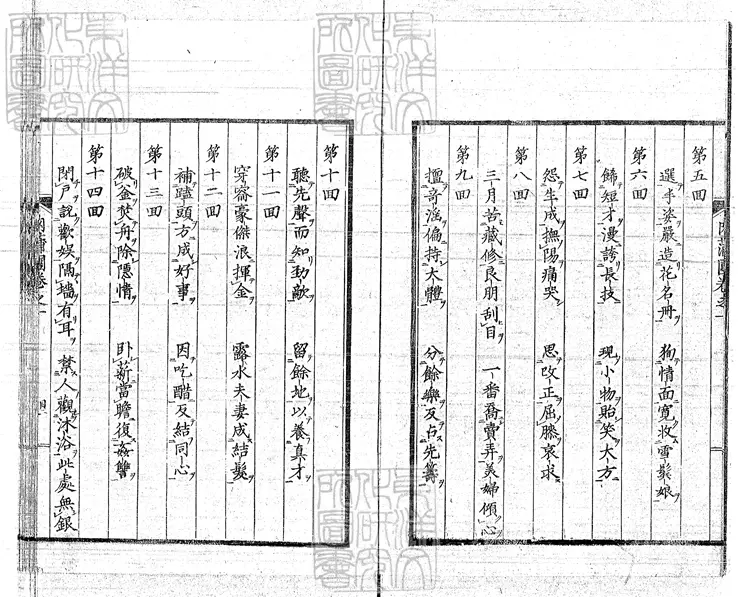 第五回
選丰姿嚴造花名冊 狥情面寛收雪鬢娘
第六回
飾短才漫誇長技 現小物貽笑大方
第七回
怨生成撫陽痛哭 思改正屈膝哀求
第八回
三月苦藏修良朋刮目 一番喬賣弄美婦傾心
第九回
擅奇淫偏持大體 分餘樂反占先籌
第十回
聽先聲而知勁敵 留餘地以養真才
第十一回
穿窬豪傑浪揮金 露水夫妻成結髮
第十二回
補瞌頭方成好事 因吃醋反結同心
第十三回
破釜焚舟除隱情 臥薪嘗膽復姦讐
第十四回
閉戸説歡娯隔墻有耳 禁人觀沐浴此處無銀
東洋文化研究所圖書